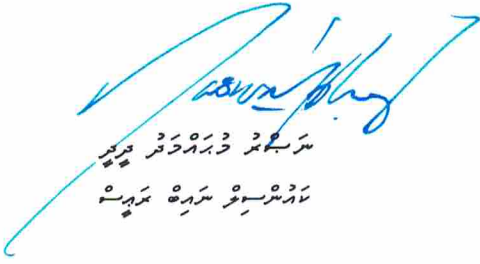 ނަޞްރު މުޙައްމަދު ދީދީ
ކައުންސިލް ނައިބް ރައީސް